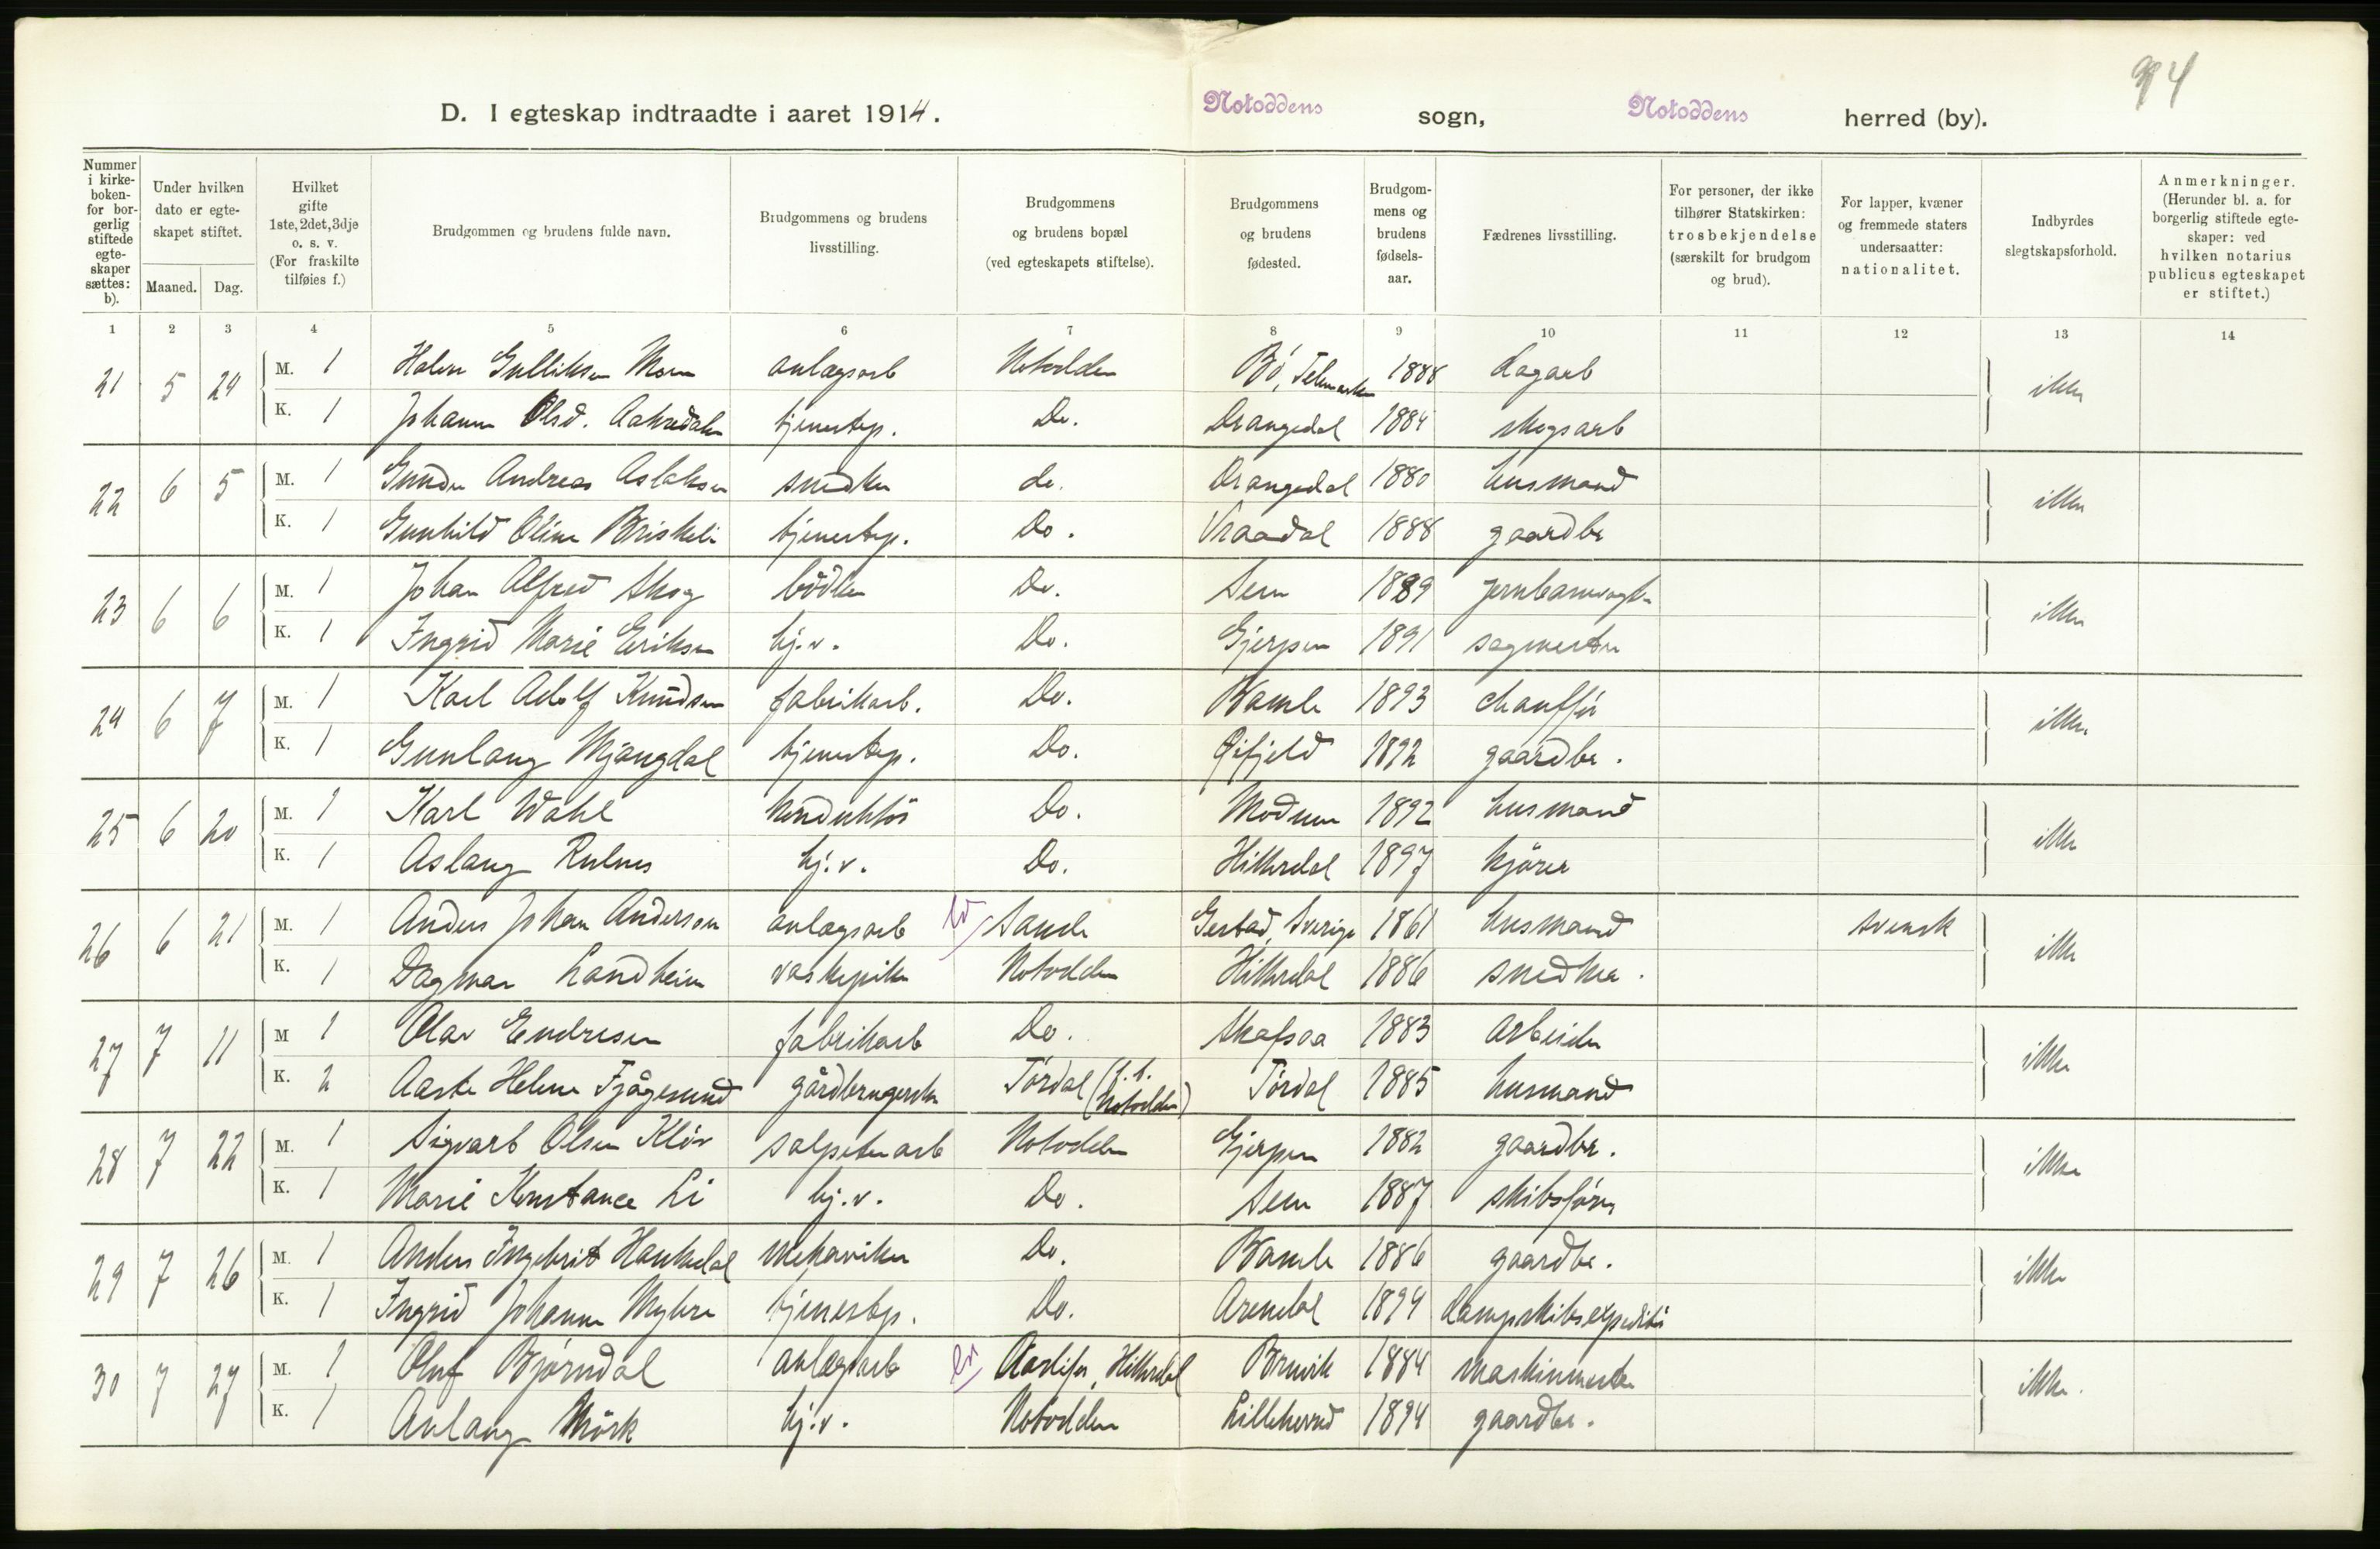 94
D. I egteskap indtraadte i aaret 1914. Notoddens sogn, Notoddens herred (by).
Nummer i kirkeboken- for borgerlig stiftede egteskaper sættes: b). Under hvilken dato er egteskapet stiftet. Maaned. Dag. Hvilket gifte 1ste, 2det, 3dje o. s. v. (For fraskilte tilføies f.) Brudgommen og brudens fulde navn. Brudgommens og brudens livsstilling. Brudgommens og brudens bopæl (ved egteskapets stiftelse). Brudgommens og brudens fødested. Brudgommens og brudens fødselsaar. Fædrenes livsstilling. For personer, der ikke tilhører Statskirken: trosbekjendelse (særskilt for brudgom og brud). For lapper, kvæner og fremmede staters undersaatter: nationalitet. Indbyrdes slegtskapsforhold. Anmerkninger. (Herunder bl. a. for borgerlig stiftede egteskaper: ved hvilken notarius publicus egteskapet er stiftet.)
1 2 3 4 5 6 7 8 9 10 11 12 13 14
21 5 24 M. 1 Halvor Gulliksen Moen anlægsarb Notodden Bø, Telemarken 1888 dagarb ikke
K. 1 Johanne Olsd. tjenestep. Do. Drangedal 1884 skogsarb
22 6 5 M. 1 Gunder Andreas Aslaksen snedker do. Drangedal 1880 husmand ikke
K. 1 Gunhild Oline Briskeli tjenestep. Do. Vraadal 1888 gaardbr
23 6 6 M. 1 Johan Alfred Skog bødker Do. Sem 1889 jernbanevogter ikke
K. 1 Ingrid Marie Eriksen hj.v. Do. Gjerpen 1891 sagmester
24 6 7 M. 1 Karl Adolf Knudsen fabrikarb. Do. Bamle 1893 chauffør ikke
K. 1 Gunlaug Mjaugdal tjenestep. Do. Øifjeld 1892 gaardbr.
25 6 20 M. 1 Karl Wahl konduktør Do. Modum 1892 husmand ikke
K. 1 Aslaug Rulnes hj.v. Do. Hitterdal 1897 kjører
26 6 21 M. 1 Anders Johan Anderson anlægsarb Sande Gestad, Sverige 1861 husmand svensk ikke
K. 1 Dagmar Landheim vaskepike Notodden Hitterdal 1886 snedker.
27 7 11 M 1 Olav Endresen fabrikarb Do. Skafsaa 1883 arbeider ikke
K. 2 Aaste Helene Fjågesund gårdbrugerske Tørdal (f.t. Notodden) Tørdal 1885 husmand
28 7 22 M. 1 Sigvart Olsen Kløv salpeterarb Notodden Gjerpen 1882 gaardbr. ikke
K. 1 Marie Konstance Li hj.v. Do. Sem 1887 skibsfører
29 7 26 M. 1 Anders Ingebrit Haukedal mekaniker Do. Bamle 1886 gaardbr. ikke
K. 1 Ingrid Johanne Myhre tjenestep. Do. Arendal 1894 dampskibsexpeditør
30 7 27 M. 1 Oluf Bjørndal anlægsarb Hitterdal Brevik 1884 maskinmester ikke.
K. 1 Aslaug Mørk hj.v. Notodden Lilleherred 1894 gaardbr.